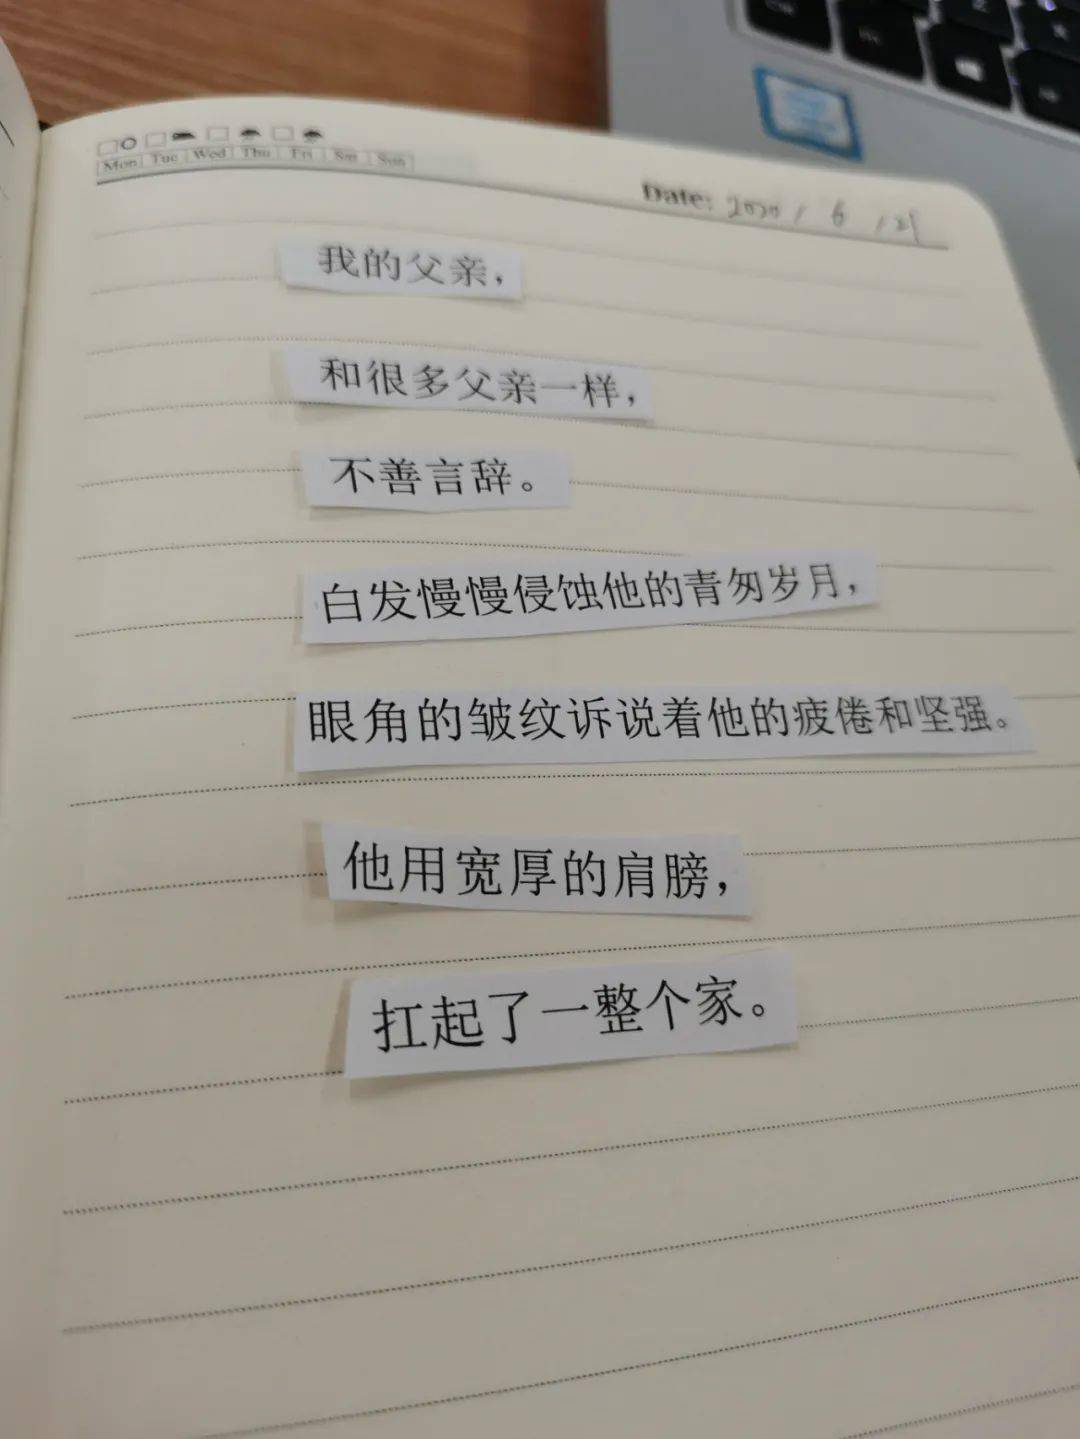 Mon Tue Wed Thu Fri Sat Sun
Date: 2020 / 6 / 21
我的父亲，
和很多父亲一样，
不善言辞。
白发慢慢侵蚀他的青匆岁月，
眼角的皱纹诉说着他的疲倦和坚强。
他用宽厚的肩膀，
扛起了一整个家。